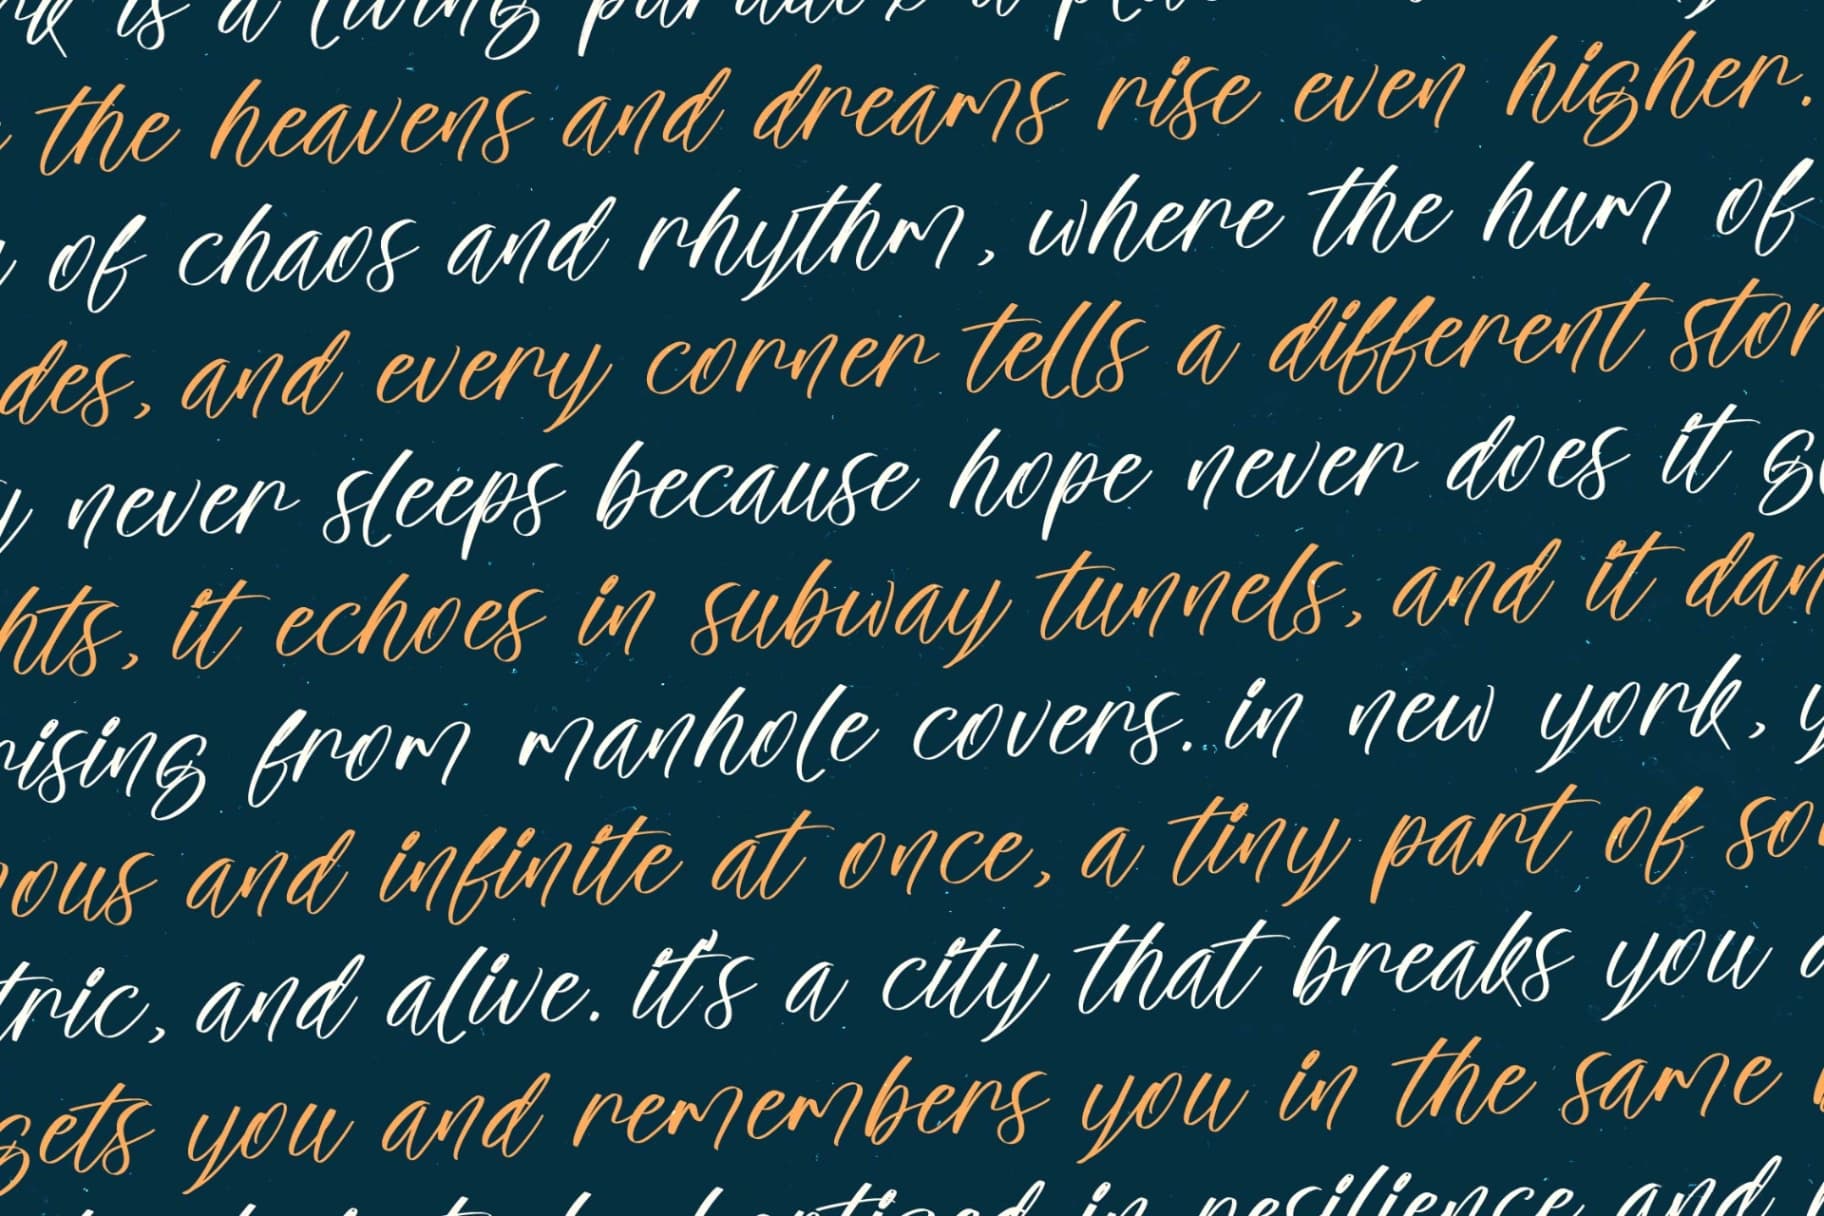 is a living paradox a
the heavens and dreams rise even higher.
of chaos and rhythm, where the hum of
des, and every corner tells a different stor
y never sleeps because hope never does it g
hts, it echoes in subway tunnels, and it dan
rising from manhole covers. in new york, y
ous and infinite at once, a tiny part of so
tric, and alive. it's a city that breaks you a
gets you and remembers you in the same
in resilience and